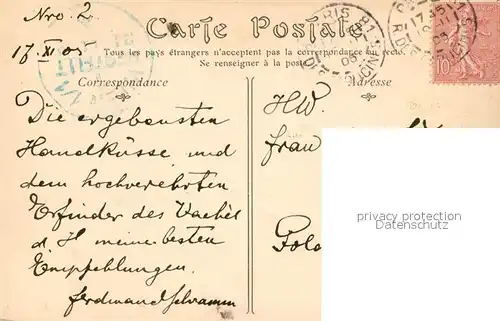 Nro. 2
17. XI 05
Carte Postale
Tous les pays étrangers n'acceptent pas la correspondance au recto.
Se renseigner à la poste.
Correspondance
Adresse
Die ergebensten
Handküsse und
dem hochverehrten
Erfinder des
d. H meine besten
Empfehlungen.
Ferdinand Schramm
HW.
Frau
privacy protection
oldthing.com
10